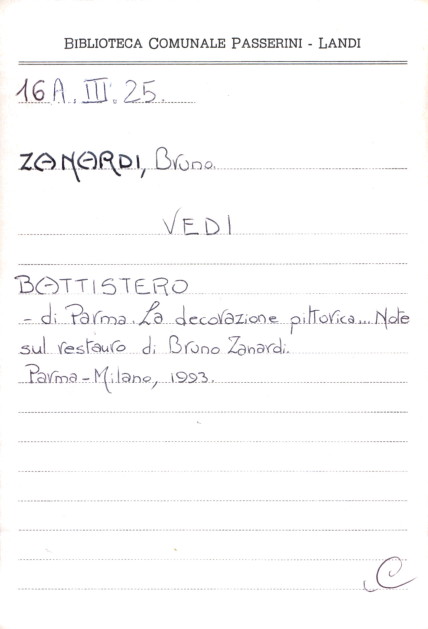 BIBLIOTECA COMUNALE PASSERINI - LANDI
16A. III. 25.
ZANARDI, Bruno.
VEDI
BATTISTERO
- di Parma. La decorazione pittorica... Note
sul restauro di Bruno Zanardi.
Parma - Milano, 1993.
C